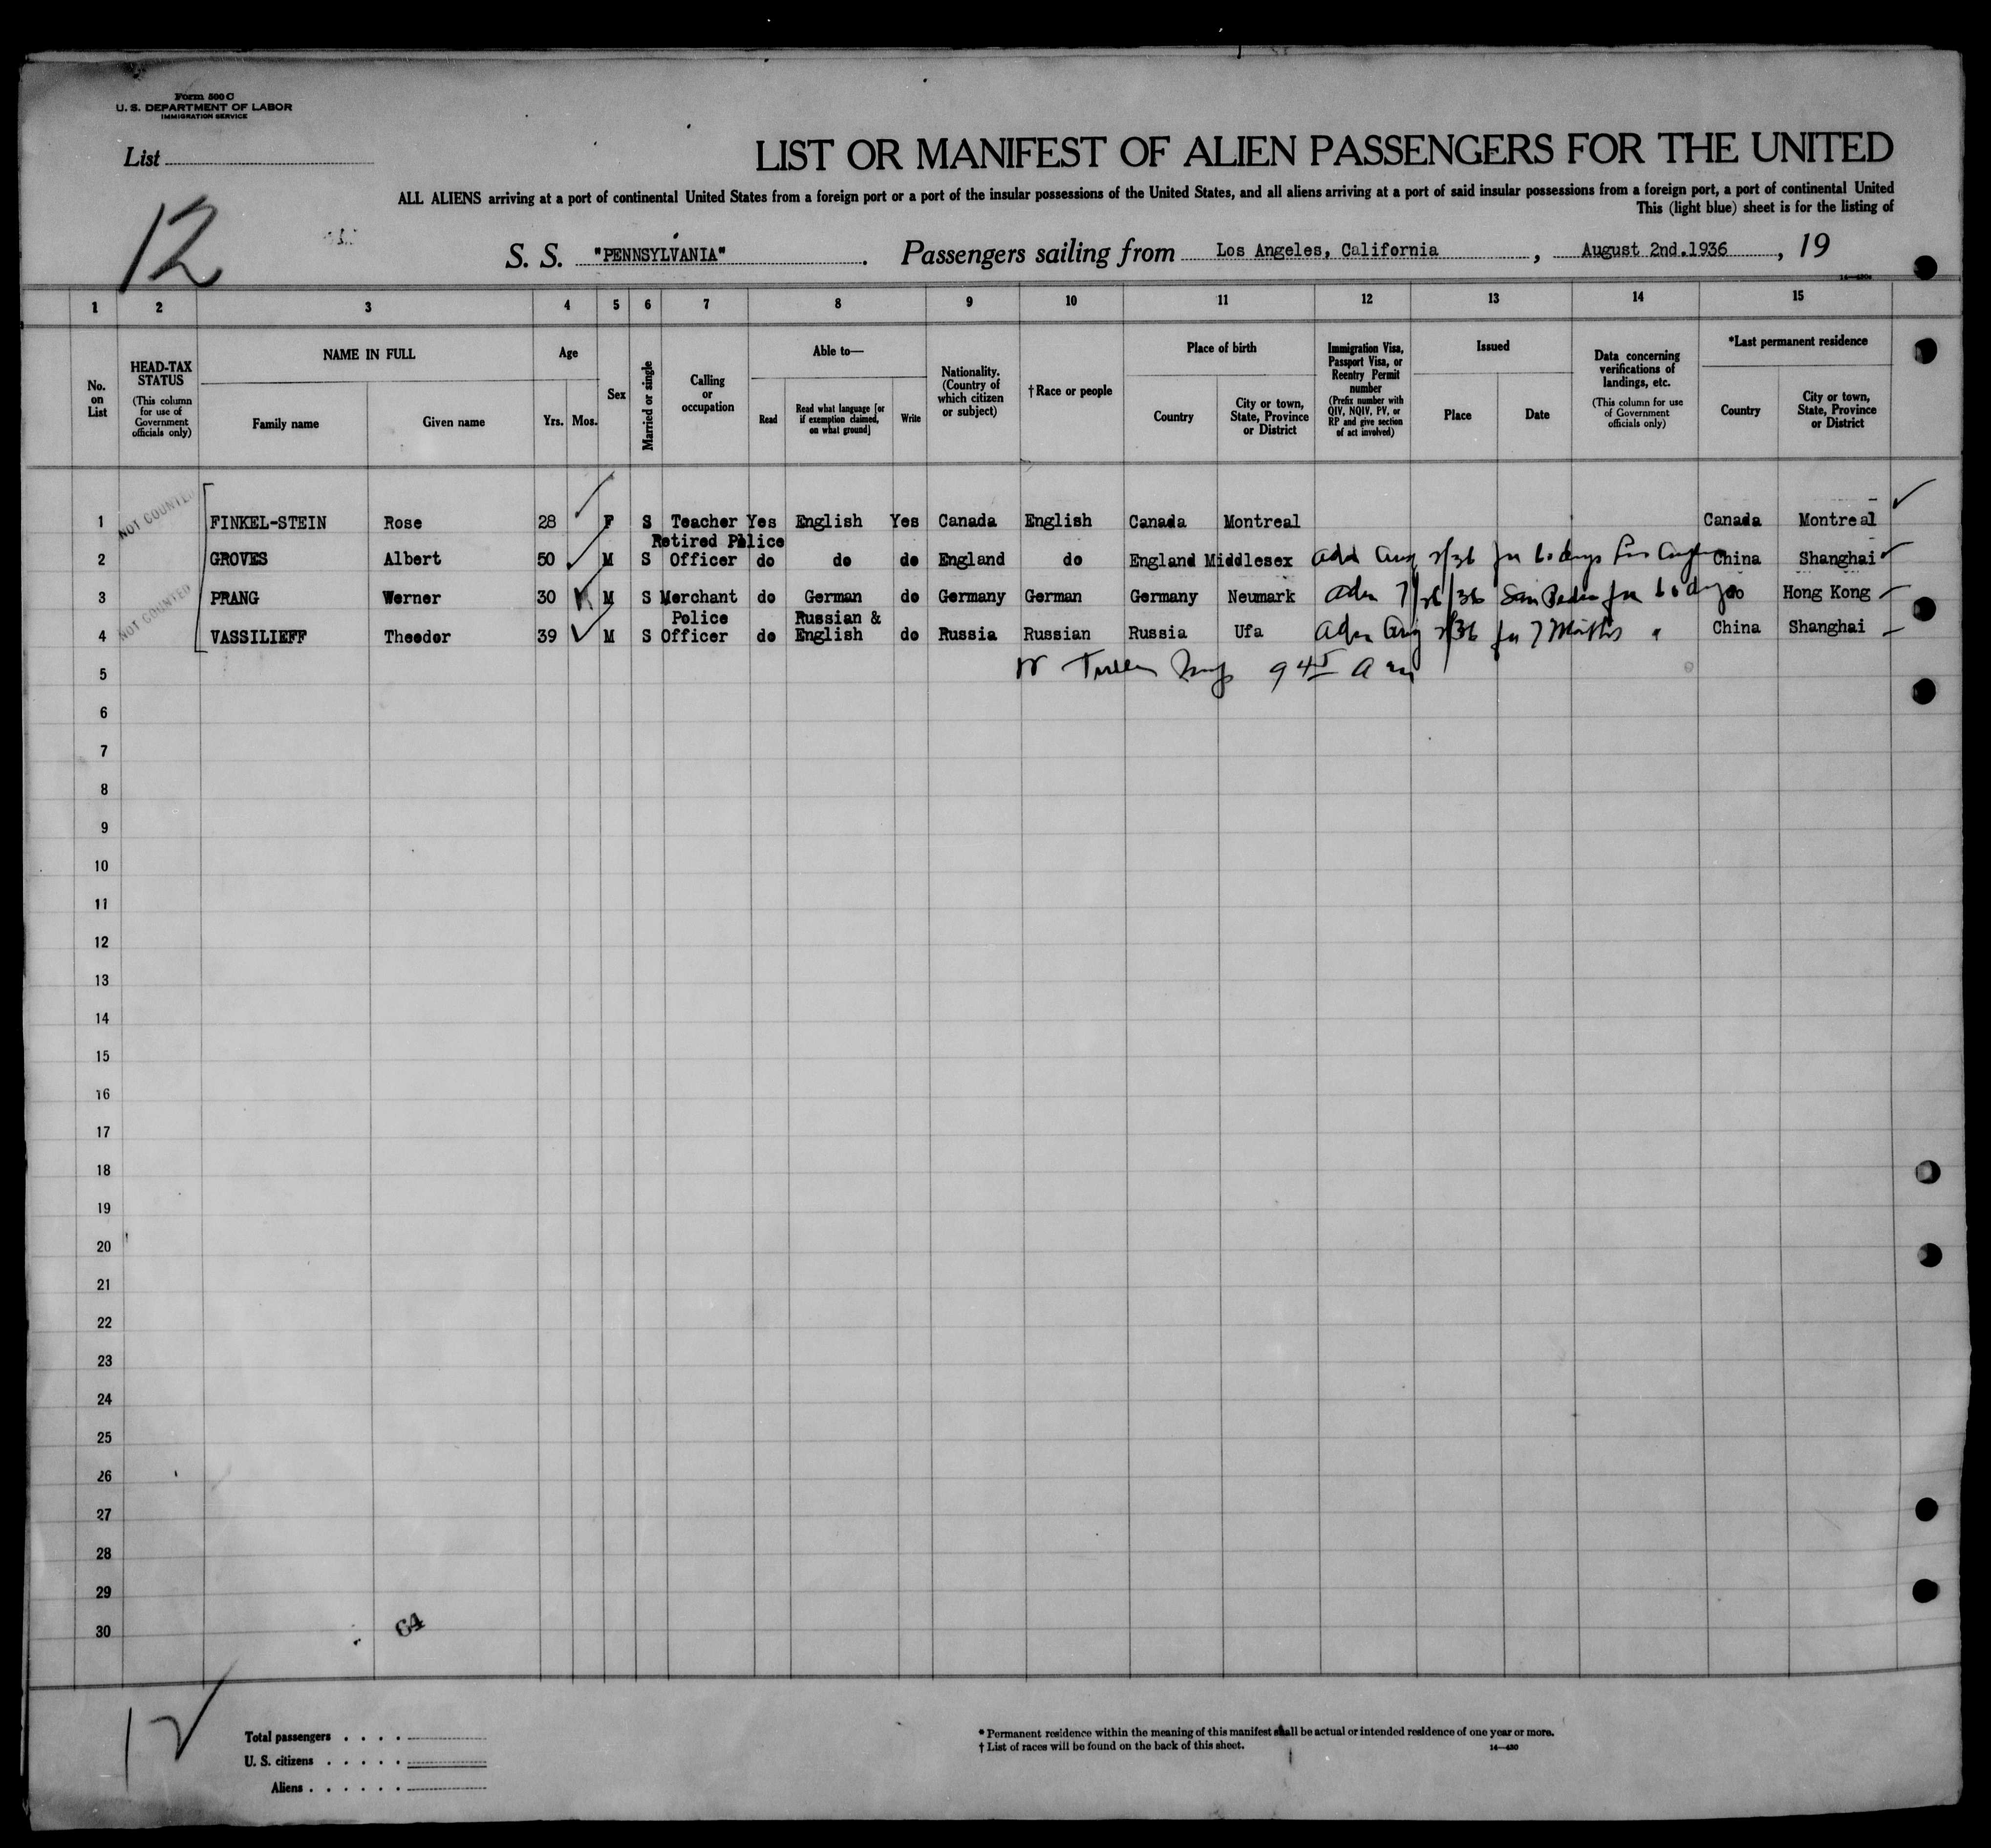 Form 500 C
U. S. DEPARTMENT OF LABOR
IMMIGRATION SERVICE
List
12
LIST OR MANIFEST OF ALIEN PASSENGERS FOR THE UNITED
ALL ALIENS arriving at a port of continental United States from a foreign port or a port of the insular possessions of the United States, and all aliens arriving at a port of said insular possessions from a foreign port, a port of continental United
This (light blue) sheet is for the listing of
S. S. "PENNSYLVANIA" . Passengers sailing from Los Angeles, California , August 2nd.1936 , 19
1 2 3 4 5 6 7 8 9 10 11 12 13 14 15
No. on List
HEAD-TAX STATUS
(This column for use of Government officials only)
NAME IN FULL
Family name
Given name
Age
Yrs. Mos.
Sex
Married or single
Calling or occupation
Able to—
Read
Read what language [or if exemption claimed, on what ground]
Write
Nationality. (Country of which citizen or subject)
† Race or people
Place of birth
Country
City or town, State, Province or District
Immigration Visa, Passport Visa, or Reentry Permit number
(Prefix number with QIV, NQIV, PV, or RP and give section of act involved)
Issued
Place
Date
Data concerning verifications of landings, etc.
(This column for use of Government officials only)
*Last permanent residence
Country
City or town, State, Province or District
NOT COUNTED
1 FINKEL-STEIN Rose 28 F S Teacher Yes English Yes Canada English Canada Montreal Canada Montreal
2 GROVES Albert 50 M S Retired Police Officer do do do England do England Middlesex Aug 2/36 for 60 days China Shanghai
NOT COUNTED
3 PRANG Werner 30 M S Merchant do German do Germany German Germany Neumark 7/26/36 San Pedro for 60 days do Hong Kong
4 VASSILIEFF Theodor 39 M S Police Officer do Russian & English do Russia Russian Russia Ufa Adm Aug 2/36 for 7 Months " China Shanghai
5 9 45 A m
6
7
8
9
10
11
12
13
14
15
16
17
18
19
20
21
22
23
24
25
26
27
28
29
30
64
Total passengers . . . .
U. S. citizens . . . . .
Aliens . . . . . .
* Permanent residence within the meaning of this manifest shall be actual or intended residence of one year or more.
† List of races will be found on the back of this sheet.
14—430